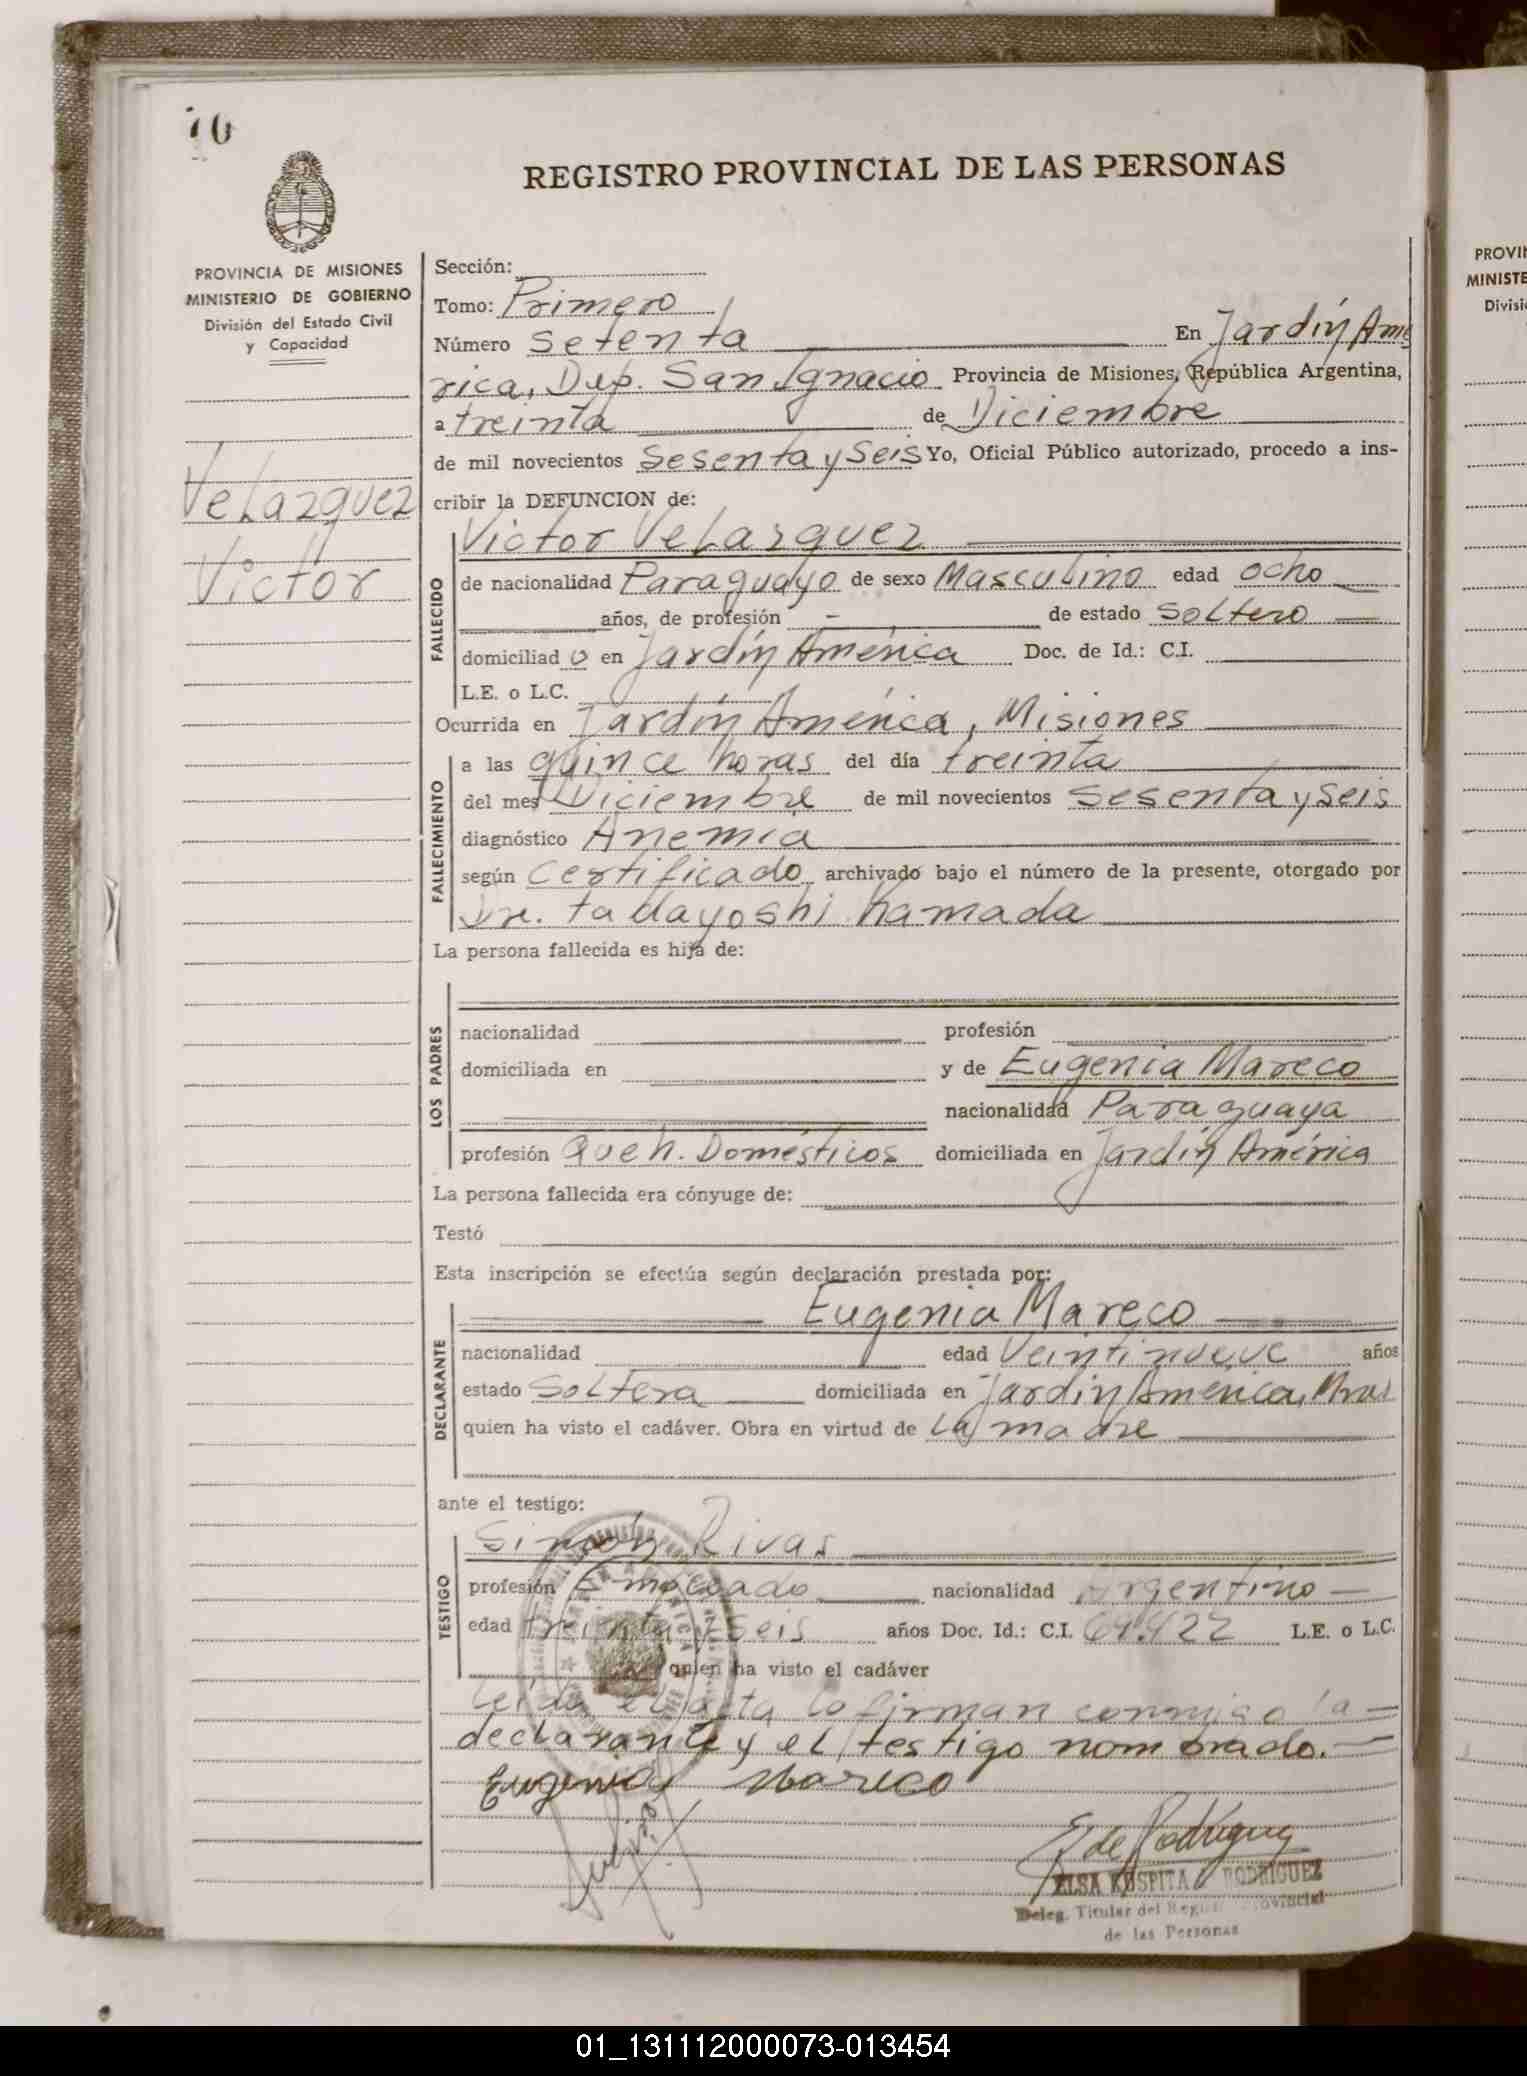 70
REGISTRO PROVINCIAL DE LAS PERSONAS
PROVINCIA DE MISIONES
MINISTERIO DE GOBIERNO
División del Estado Civil
y Capacidad
Velazquez
Victor
Sección:
Tomo: Primero
Número Setenta En Jardín Amé
rica, Dep. San Ignacio Provincia de Misiones, República Argentina,
a treinta de Diciembre
de mil novecientos Sesenta y Seis Yo, Oficial Público autorizado, procedo a ins-
cribir la DEFUNCION de:
FALLECIDO
Victor Velazquez
de nacionalidad Paraguayo de sexo Masculino edad ocho
años, de profesión - de estado Soltero
domiciliad o en Jardín América Doc. de Id.: C.I.
L.E. o L.C.
Ocurrida en Jardín América, Misiones
FALLECIMIENTO
a las quince horas del día treinta
del mes Diciembre de mil novecientos Sesenta y Seis
diagnóstico Anemia
según Certificado archivado bajo el número de la presente, otorgado por
Dr. Tadayoshi Kamada
La persona fallecida es hija de:
LOS PADRES
nacionalidad profesión
domiciliada en y de Eugenia Mareco
nacionalidad Paraguaya
profesión Queh. Domésticos domiciliada en Jardín América
La persona fallecida era cónyuge de:
Testó
Esta inscripción se efectúa según declaración prestada por:
DECLARANTE
Eugenia Mareco
nacionalidad edad Veintinueve años
estado Soltera domiciliada en Jardín América,
quien ha visto el cadáver. Obra en virtud de La madre
ante el testigo:
TESTIGO
Simón Rivas
profesión Empleado nacionalidad Argentino
edad treinta y Seis años Doc. Id.: C.I. 69.422 L.E. o L.C.
quien ha visto el cadáver
Leída el acta lo firman conmigo la
declarante y el testigo nombrado.
Eugenia Mareco
E de Rodriguez
ELSA RODRIGUEZ
Deleg. Titular del Registro Provincial
de las Personas
PROVIN
MINISTE
Divisi
01_131112000073-013454